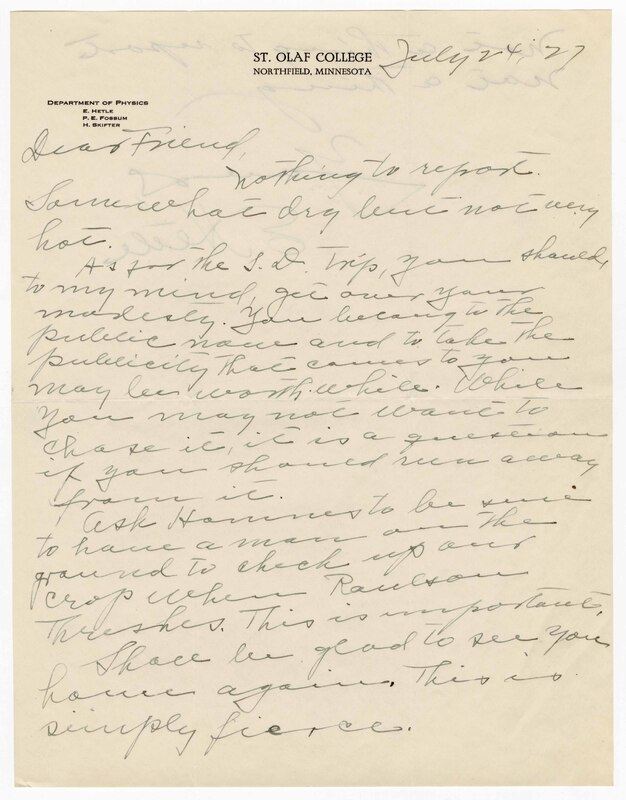 ST. OLAF COLLEGE
NORTHFIELD, MINNESOTA
July 24, 27
DEPARTMENT OF PHYSICS
E. HETLE
P. E. FOSSUM
H. SKIFTER
Dear Friend,
Nothing to report.
Somewhat dry but not very
hot.
As for the S. D. trip, you should,
to my mind, get over your
modesty. You belong to the
public now and to take the
publicity that comes to you
may be worth-while. While
you may not want to
chase it, it is a question
if you should run away
from it.
Ask Hannes to be sure
to have a man on the
ground to check up our
crop when Raulson
threshes. This is important.
Shall be glad to see you
home again. This is
simply fierce.